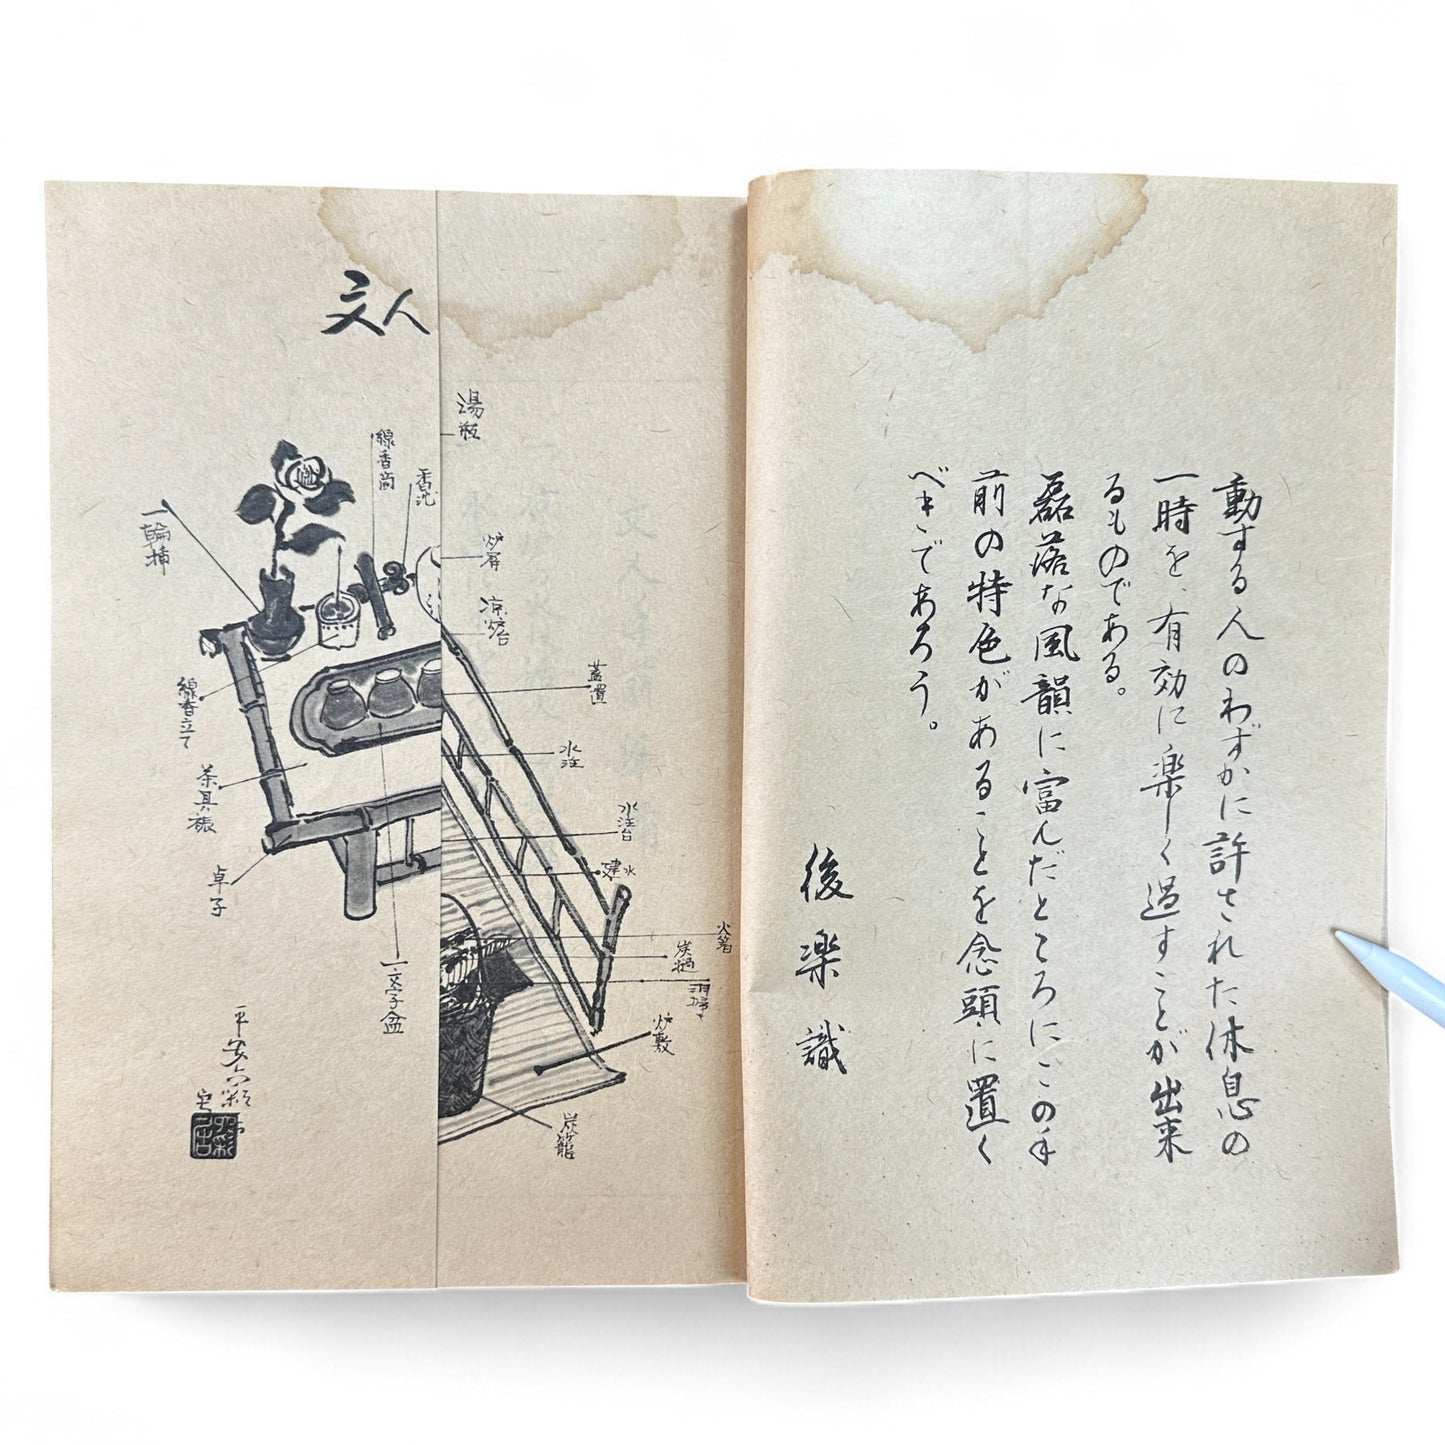 動する人のわずかに許された休息の
一時を、有効に楽しく過すことが出来
るものである。
磊落な風韻に富んだところにこの手
前の特色があることを念頭に置く
べきであろう。
後楽識
文人
湯瓶
線香筒
炉屏
涼炉台
一輪挿
蓋置
線香立て
水注
茶具褥
水注台
建水
卓子
火箸
炭撾
一文字盆
炉敷
炭籠